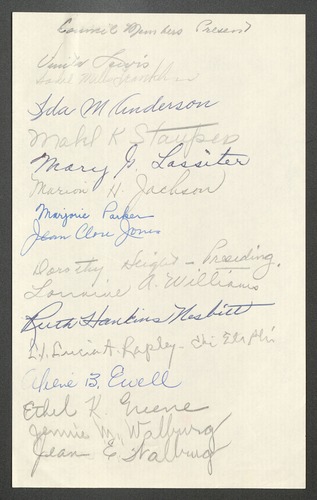 Council Members Present
Lewis
Franklin
Ida M Anderson
Mabl K Staupers
Mary G. Lassiter
Marion H. Jackson
Marjorie Parker
Jean Clore Jones
Dorothy Height - Presiding.
Lorraine A. Williams
Ruth Hankins Nesbitt
Lucia A. Rapley - Chi Eta Phi
B. Ewell
Ethel K. Greene
Jennie M. Walburg
Jean E. Walburg